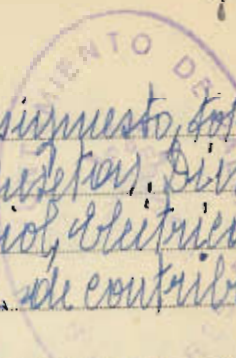 MIENTO DE
signesto, tot
pesetas. Div
nol, Electric
de contrib